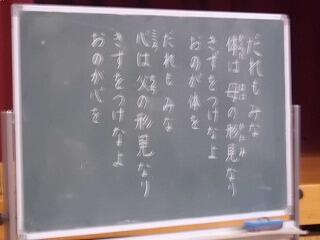 だれもみな
体は母の形見なり
きずをつけなよ
おのが体を
だれもみな
心は父の形見なり
きずをつけなよ
おのが心を